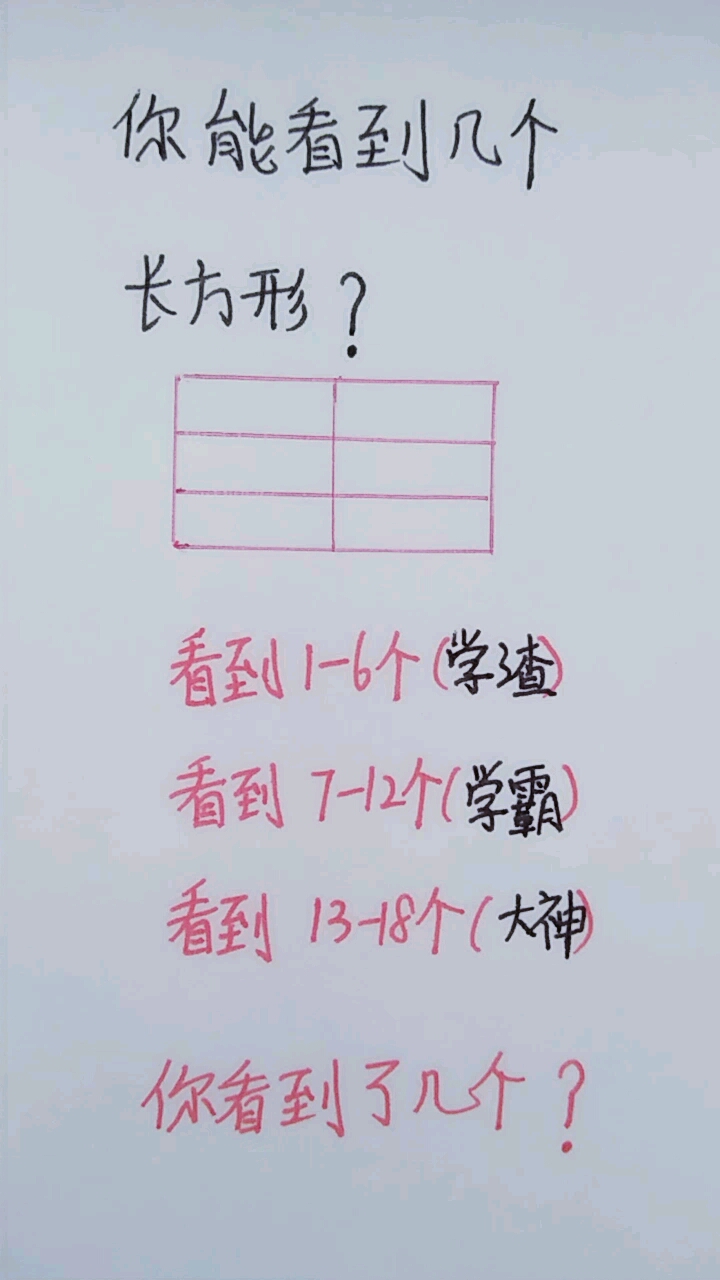 你能看到几个
长方形?
看到1-6个(学渣)
看到 7-12个(学霸)
看到 13-18个(大神)
你看到了几个?